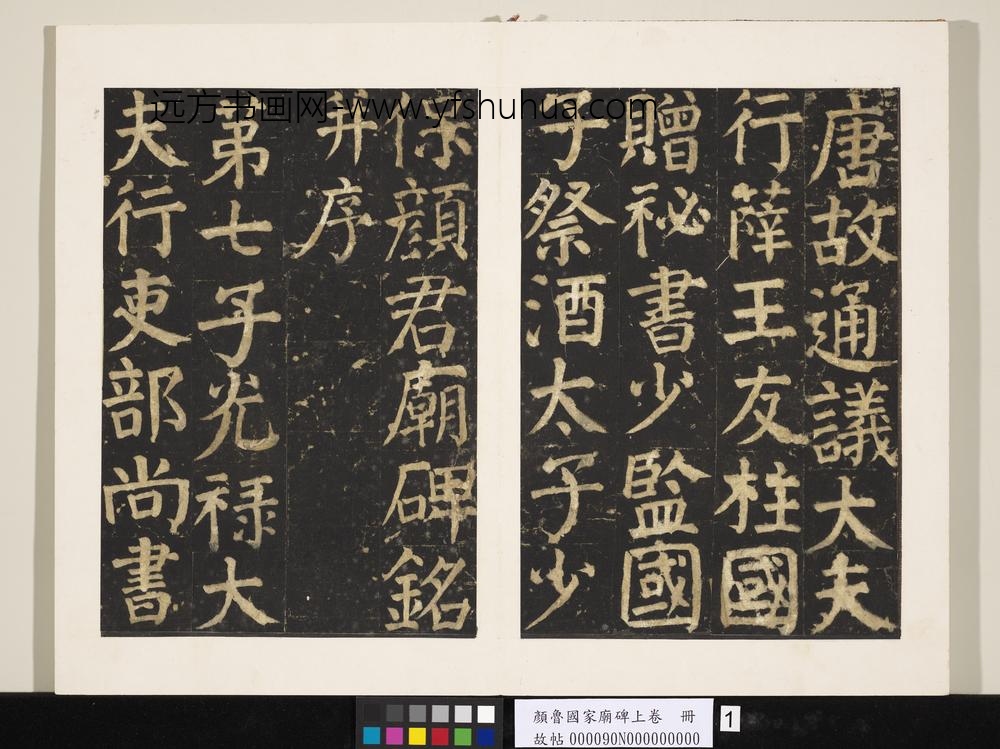 唐故通議大夫
行薛王友柱國
贈祕書少監國
子祭酒太子少
保顏君廟碑銘
并序
第七子光祿大
夫行吏部尚書
远方书画网-www.yfshuhua.com
顏魯國家廟碑上卷 冊
故帖 000090N000000000
1